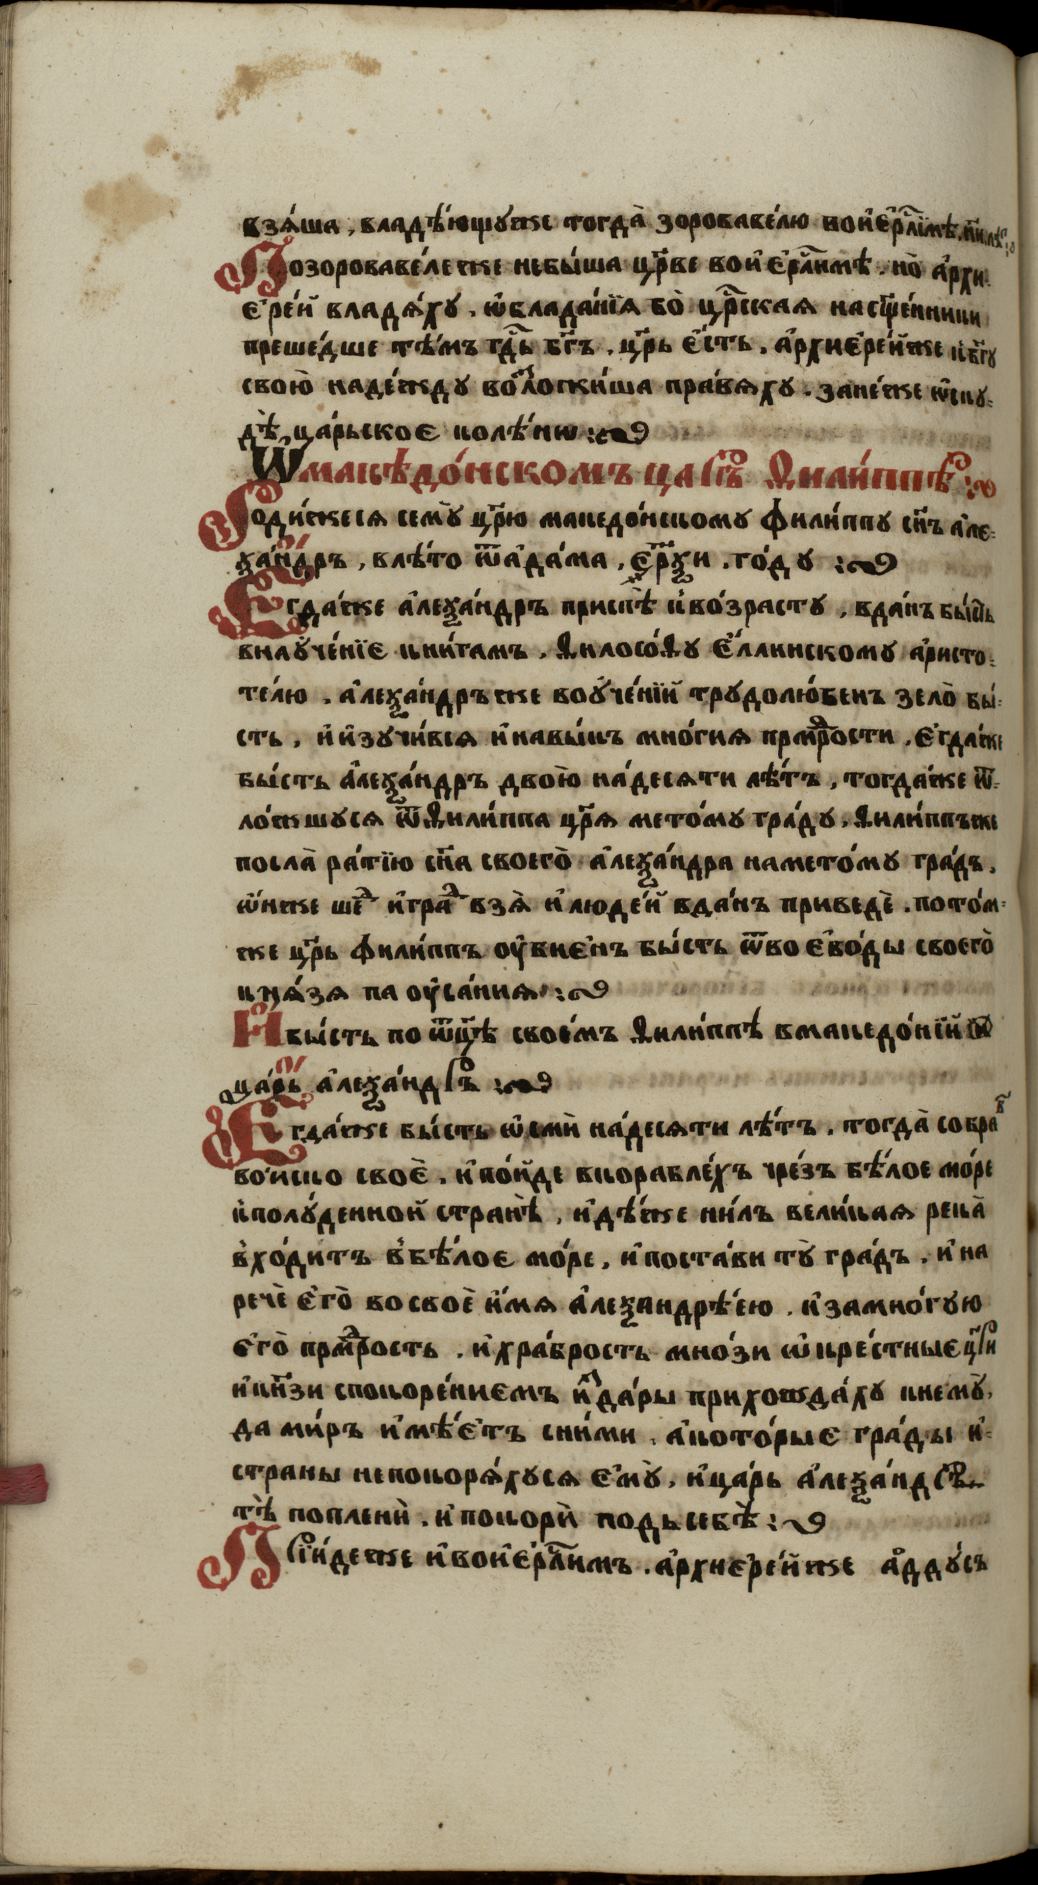 взѧ́ша, владѣ́ющꙋже тогда̀ зоровавею́лю вои҆є҆рⷭ҇ли́мѣ.
Позоровавележе небы́ша црⷭ҇ве вои҆є҆рⷭ҇ли́мѣ. но̀ а҆рхи-
є҆ре́и владѧ́хꙋ. ѡ҆блада́нїѧ бо̀ црⷭ҇каѧ насщ҃е́нники
преше́дше тѣ́мъ гдⷭ҇ь бг҃ъ. цр҃ь є҆́сть. а҆рхиє҆ре́йже къбг҃ꙋ
свою̀ наде́ждꙋ возложи́ша пра́вѧхꙋ. зане́же ѿпꙋ-
дѣ̀ ца́рьское колѣ́но :~
Ѡ҆македо́нскомъ царѣ̀ Ѳили́ппѣ :~
Роди́жесѧ семꙋ̀ цр҃ю македо́нскомꙋ фили́ппꙋ сн҃ъ а҆ле-
ѯа́ндръ, влѣ́то ѿа҆да́ма, є҆рѯи. го́дꙋ :~
Є҆гда́же а҆леѯа́ндръ приспѣ̀ к̾во́зрастꙋ, вда́нъ бы́сть
внаꙋче́нїе кни́гамъ. Ѳилосо́Ѳꙋ є҆́ллинскомꙋ а҆ристо-
те́лю. а҆леѯа́ндръже воꙋ҆че́нїй трꙋдолю́бенъ зело̀ бы́-
сть, и҆ и҆зꙋчи́всѧ и҆навы́къ мно́гиѧ прмⷣрости. є҆гда́же
бы́сть а҆леѯа́ндръ двою̀ на́десѧти лѣ́тъ, тогда́же ѿ-
ло́жшꙋсѧ ѿѲили́ппа цр҃ѧ мето́мꙋ гра́дꙋ, Ѳили́ппъже
посла̀ ра́тїю сн҃а своего̀ а҆леѯа́ндра намето́мꙋ гра́дъ.
ѡ҆́нже шеⷣ и҆граⷣ взѧ̀ и҆люде́й вда́нь приведѐ. пото́м-
же цр҃ь фили́ппъ оу҆биє́нъ бы́сть ѿвоєво́ды своего̀
кнѧ́зѧ паоу҆са́ниѧ :~
И҆бы́сть по ѿц҃ѣ̀ свое́мъ Ѳили́ппѣ вмакедо́нїй
ца́рь а҆леѯа́ндръ :~
Є҆гда́же бы́сть ѡ҆смѝ на́десѧти лѣ́тъ. тогда̀ собраⷡ
во́иско своѐ. и҆по́йде вкорабле́хъ чре́зъ бѣ́лое мо́ре
к̾полꙋ́денной странѣ̀, и҆дѣ́же ни́лъ вели́каѧ река̀
в̾хо́дитъ в̾бѣ́лое мо́ре, и҆поста́ви тꙋ̀ гра́дъ. и҆на
речѐ є҆го̀ восвоѐ и҆́мѧ а҆леѯандрѣ́ею. и҆замно́гꙋю
є҆го̀ прмⷣрость. и҆хра́брость мно́зи ѡ҆кре́стные цр҃и
и҆кнѧ҃зи спокоре́ниємъ и҆ да́ры прихожда́хꙋ кнемꙋ̀.
да ми́ръ и҆мѣ́єтъ сни́ми. а҆кото́рыє гра́ды и҆
страны непокорѧ́хꙋсѧ є҆мꙋ̀, и҆ца́рь а҆леѯа́ндръ
тѣ̀ поплени́. и҆покорѝ подьсебѣ̀ :~
Прїи́деже и҆вои҆є҆рⷭ҇ли́мъ. а҆рхиє҆ре́йже а҆ддꙋ́съ